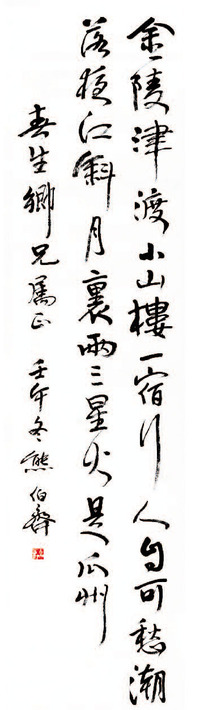 金陵津渡小山樓一宿行人自可愁潮
落夜江斜月裏兩三星火是瓜州
春生鄉兄屬正 壬午冬熊伯齊